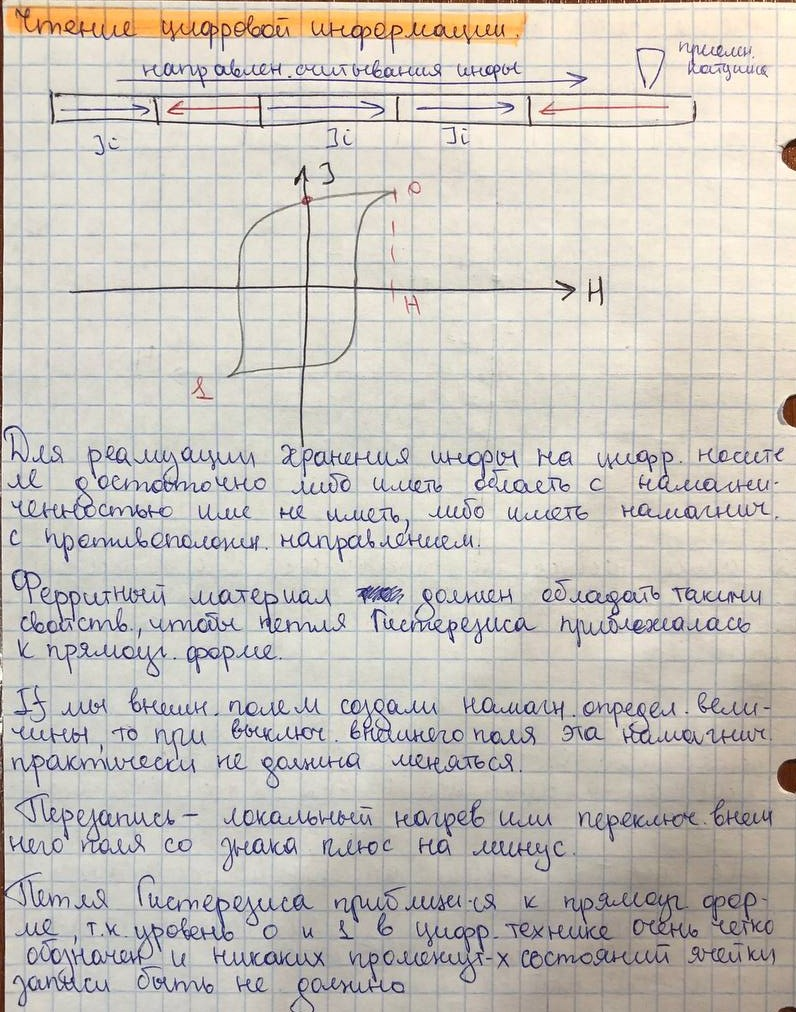 Чтение цифровой информации.
направлен. считывания инфы
приемн.
катушка
Ji
Ji
Ji
J
0
H
H
1
Для реализации хранения инфы на цифр. носите
ле достаточно либо иметь область с намагни-
ченностью или не иметь, либо иметь намагнич.
с противополож. направлением.
Ферритный материал должен обладать такими
свойств., чтобы петля Гистерезиса приближалась
к прямоуг. форме.
If мы внешн. полем создали намагн. определ. вели-
чины, то при выключ. внешнего поля эта намагнич.
практически не должна меняться.
Перезапись – локальный нагрев или переключ. внеш
него поля со знака плюс на минус.
Петля Гистерезиса приближ-ся к прямоуг. фор-
ме, т.к. уровень 0 и 1 в цифр. технике очень четко
обозначен и никаких промежут-х состояний ячейки
записи быть не должно